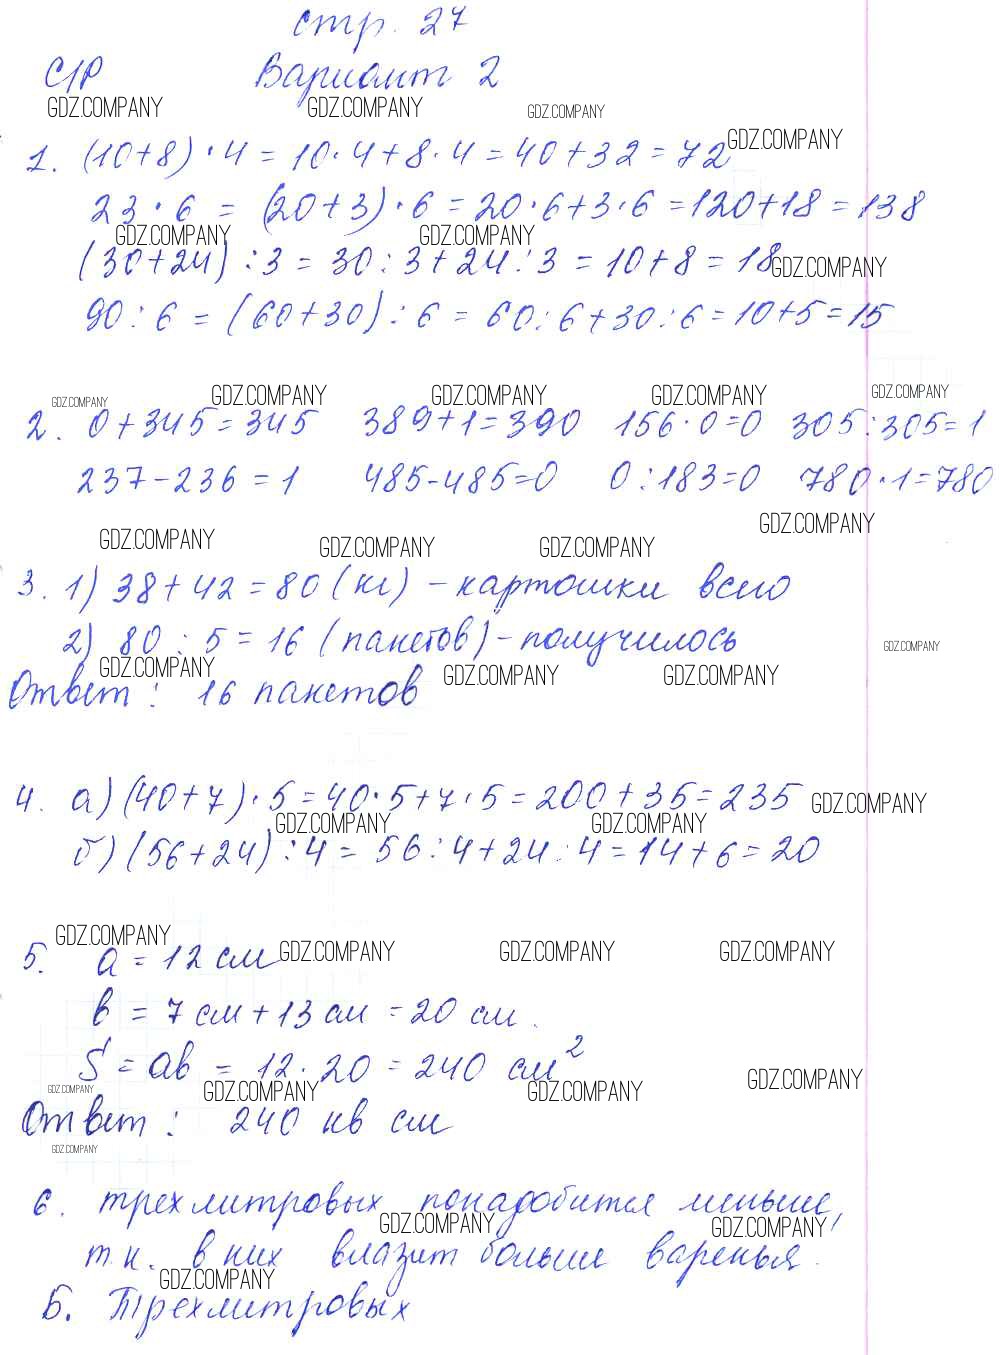 стр. 27
С/Р Вариант 2
GDZ.COMPANY GDZ.COMPANY GDZ.COMPANY
GDZ.COMPANY
1. (10+8)·4=10·4+8·4=40+32=72
23·6=(20+3)·6=20·6+3·6=120+18=138
GDZ.COMPANY GDZ.COMPANY
(30+24):3=30:3+24:3=10+8=18
GDZ.COMPANY
90:6=(60+30):6=60:6+30:6=10+5=15
GDZ.COMPANY GDZ.COMPANY GDZ.COMPANY GDZ.COMPANY GDZ.COMPANY
2. 0+345=345 389+1=390 156·0=0 305:305=1
237-236=1 485-485=0 0:183=0 780·1=780
GDZ.COMPANY
GDZ.COMPANY GDZ.COMPANY GDZ.COMPANY
3. 1) 38+42=80(кг) - картошки всего
2) 80:5=16 (пакетов) - получилось
GDZ.COMPANY
GDZ.COMPANY GDZ.COMPANY GDZ.COMPANY
Ответ: 16 пакетов
4. а) (40+7)·5=40·5+7·5=200+35=235
GDZ.COMPANY
GDZ.COMPANY GDZ.COMPANY
б) (56+24):4=56:4+24:4=14+6=20
GDZ.COMPANY GDZ.COMPANY GDZ.COMPANY GDZ.COMPANY
5. a=12 см
b=7 см+13 см=20 см.
S=ab=12·20=240 см²
GDZ.COMPANY GDZ.COMPANY GDZ.COMPANY GDZ.COMPANY
Ответ: 240 кв см
GDZ.COMPANY
6. трехлитровых понадобится меньше,
GDZ.COMPANY GDZ.COMPANY
т.к. в них влазит больше варенья.
GDZ.COMPANY
Б. Трехлитровых